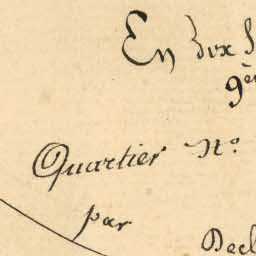 En dix
9è
Quartier N°
par
Decl